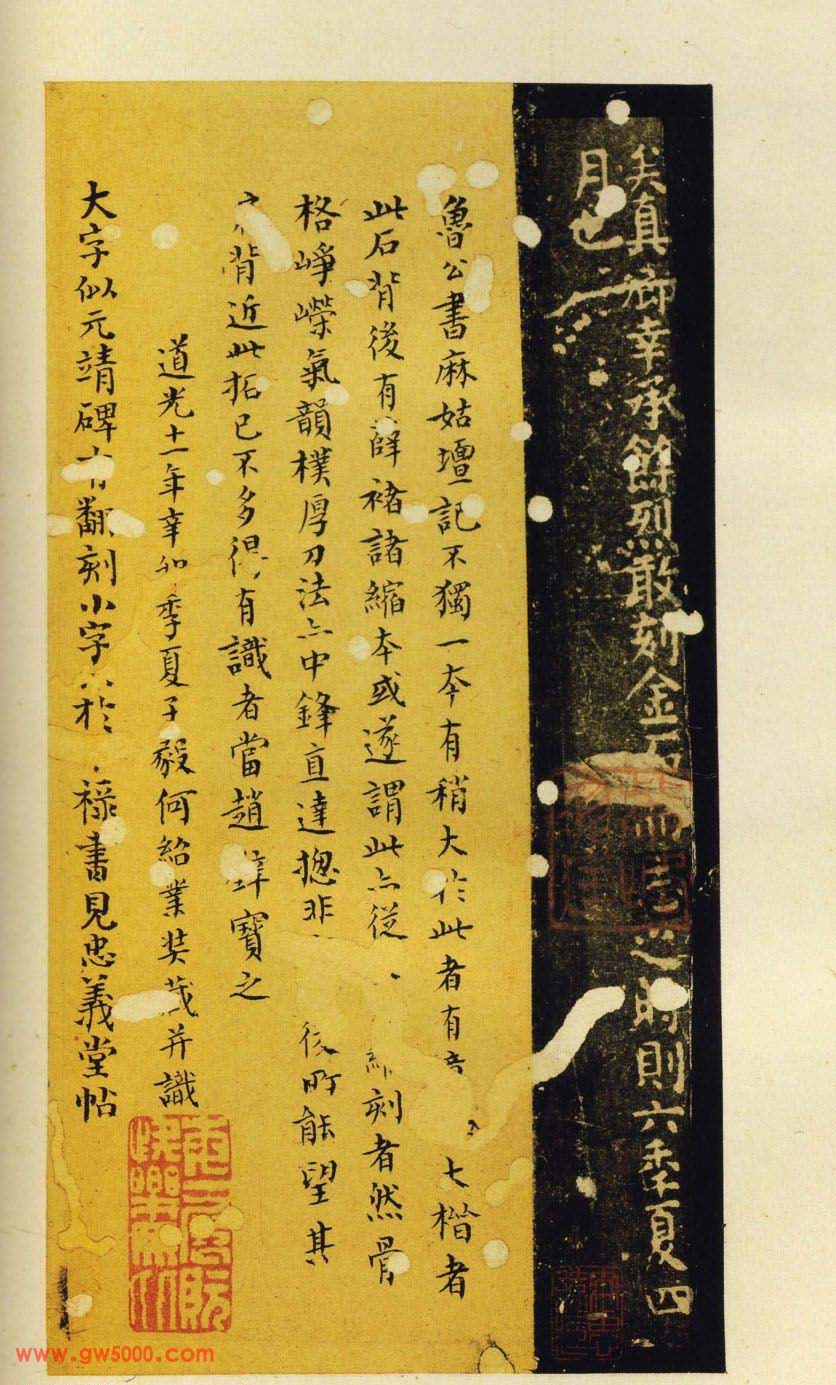 矣真卿幸承餘烈敢刻金石而志之時則六季夏四
月也
魯公書麻姑壇記不獨一本有稍大於此者有 大楷者
此石背後有薛褚諸縮本或遂謂此亦從 刻者然骨
格崢嶸氣韻樸厚刀法亦中鋒直達摠非 後所能望其
背近此拓已不多得有識者當趙 寶之
道光十一年辛卯季夏子毅何紹業裝 并識
大字似元靖碑有翻刻小字 於 祿書見忠義堂帖
www.gw5000.com